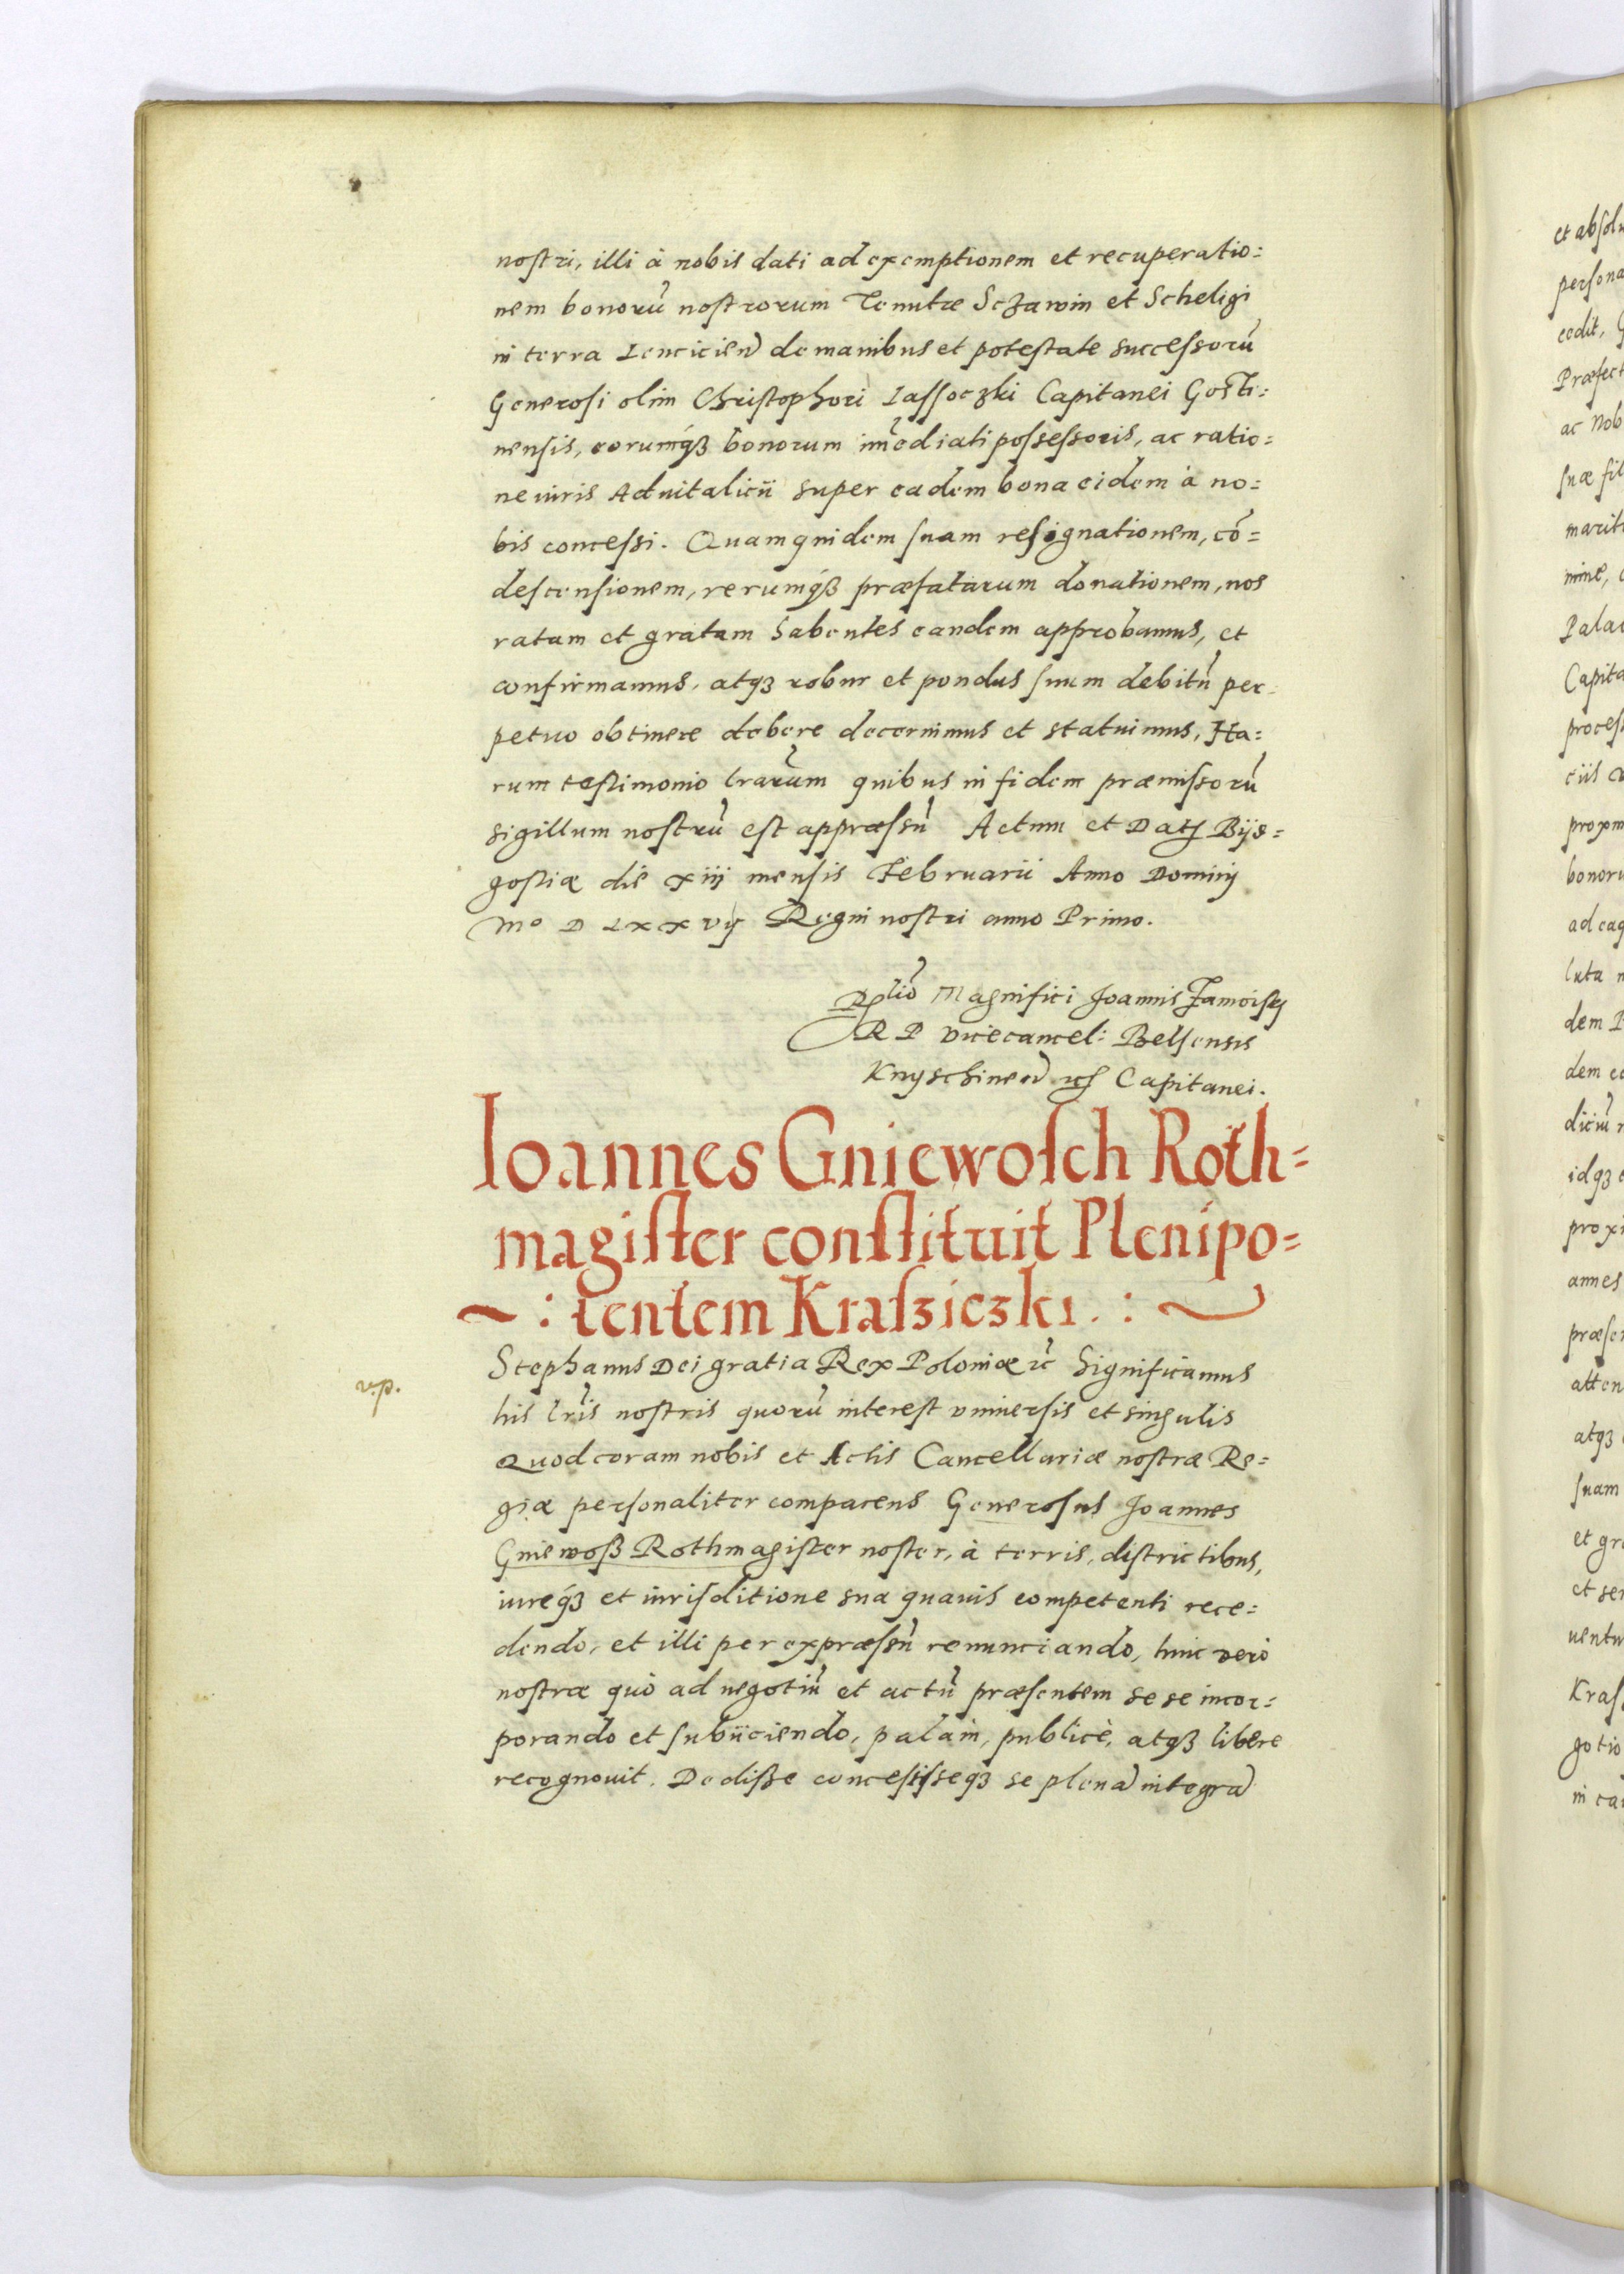 nostri, illi à nobis dati ad exemptionem et recuperatio=
nem bonorū nostrorum Tenutæ Sczawin et Scheligi
in terra Lencicien̄ de manibus et potestate successorū
Generosi olim Christophori Lassoczki Capitanei Gosti=
nensis, eorumq́ꝫ bonorum im̄ediati possessoris, ac ratio=
ne iuris Aduitalicii super eadem bona eidem à no=
bis concessi. Quam quidem suam resignationem, cō=
descensionem, rerumq́ꝫ præfatarum donationem, nos
ratam et gratam habentes eandem approbamus, et
confirmamus, atqꝫ robur et pondus suum debitū per=
petuo obtinere debere decernimus et statuimus, Ha=
rum testimonio l̄rarum quibus in fidem præmissorū
sigillum nostrū est appræssū Actum et Datꝭ Bijd=
gostiæ die xiij mensis Februarii Anno Dominij
Mº D Lxxvij Regni nostri anno Primo.
Rlio Magnifici Joannis Zamoisky
R P Vicecancel: Belsensis
Knyschinen̄ ꝛcꝭ Capitanei.
Ioannes Gniewosch Roth=
magister constituit Plenipo=
~ : tentem Krasziczki . : ~
v.p.
Stephanus Dei gratia Rex Poloniæ ꝛc̄ Significamus
his l̄ris nostris quorū interest vniuersis et singulis
Quod coram nobis et Actis Cancellariæ nostræ Re=
giæ personaliter comparens Generosus Joannes
Gniewoß Rothmagister noster, à terris, districtibus,
iureq́ꝫ et iurisditione sua quauis competenti rece=
dendo, et illi per expræssū renunciando, huic verò
nostræ quò ad negotiū et actū præsentem se se incor=
porando et subiiciendo, palàm, publicè, atqꝫ libere
recognouit. Dediße concessisseqꝫ se plenā integrā